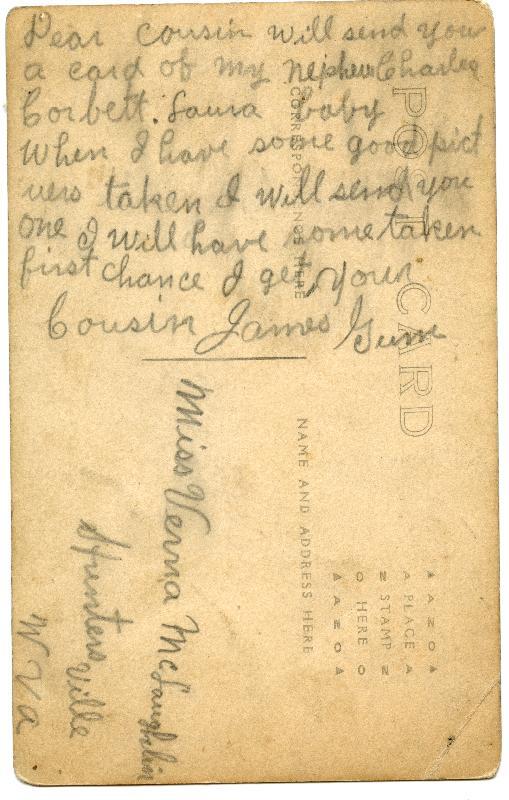 Dear cousin will send you
a card of my nephew Charles
Corbett. Laura baby
When I have some good pict
uers taken I will send you
one I will have some taken
first chance I get, your
Cousin James Gum
POST CARD
CORRESPONDENCE HERE
NAME AND ADDRESS HERE
AZOA
PLACE
STAMP
HERE
AAZOA
Miss Verna McLaughlin
Huntersville
W Va